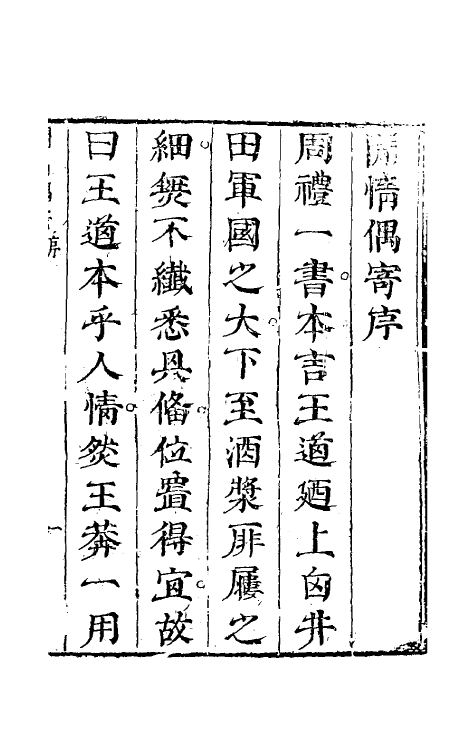 閒情偶寄序
周禮一書本言王道廼上自井
田軍國之大下至酒漿扉屨之
細無不纖悉具備位置得宜故
曰王道本乎人情然王莽一用